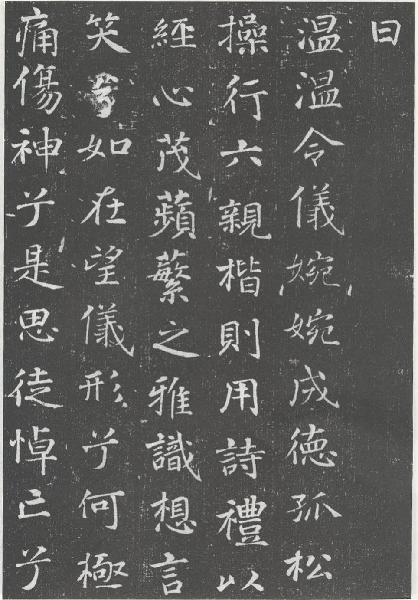 曰
温温令儀婉婉成德孤松
操行六親楷則用詩禮以
經心茂蘋蘩之雅識想言
笑兮如在望儀形兮何極
痛傷神兮是思徒悼亡兮